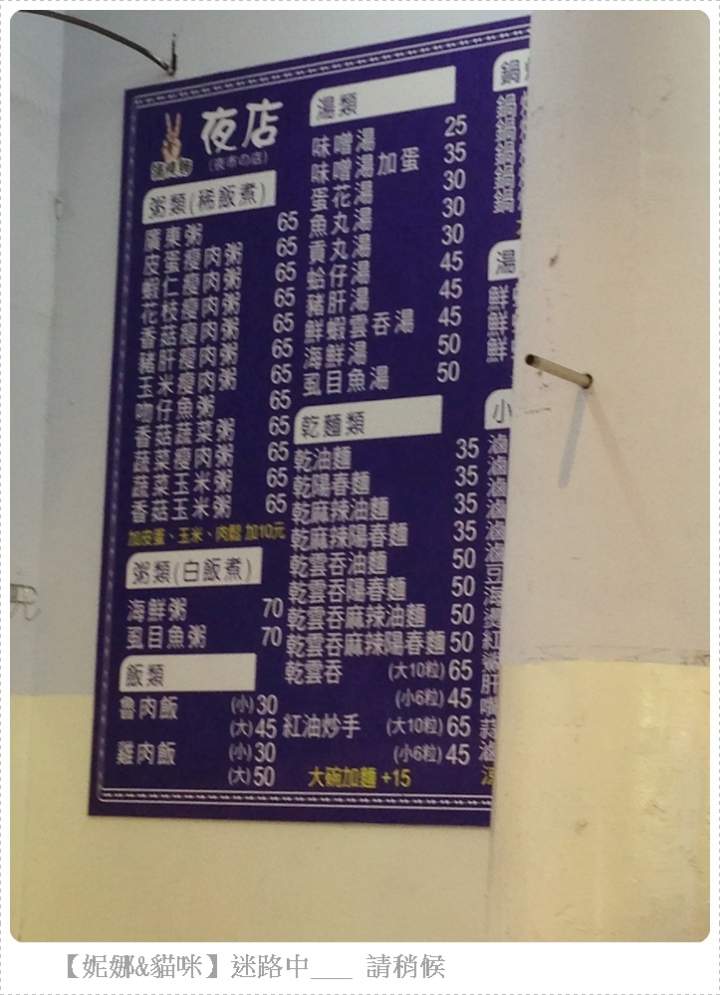 夜店
(夜市の店)
粥類(稀飯煮)
廣東粥 65
皮蛋瘦肉粥 65
蝦仁瘦肉粥 65
花枝瘦肉粥 65
香菇瘦肉粥 65
豬肝瘦肉粥 65
玉米瘦肉粥 65
吻仔魚粥 65
香菇蔬菜粥 65
蔬菜瘦肉粥 65
蔬菜玉米粥 65
香菇玉米粥 65
加皮蛋、玉米、肉鬆 加10元
粥類(白飯煮)
海鮮粥 70
虱目魚粥 70
飯類
魯肉飯 (小)30
(大)45
雞肉飯 (小)30
(大)50
湯類
味噌湯 25
味噌湯加蛋 35
蛋花湯 30
魚丸湯 30
貢丸湯 30
蛤仔湯 45
豬肝湯 45
鮮蝦雲吞湯 45
海鮮湯 50
虱目魚湯 50
乾麵類
乾油麵 35
乾陽春麵 35
乾麻辣油麵 35
乾麻辣陽春麵 35
乾雲吞油麵 50
乾雲吞陽春麵 50
乾雲吞麻辣油麵 50
乾雲吞麻辣陽春麵 50
乾雲吞 (大10粒) 65
(小6粒) 45
紅油炒手 (大10粒) 65
(小6粒) 45
大碗加麵 +15
鍋
鍋
鍋
鍋
鍋
湯
鮮
鮮
鮮
小
滷
滷
滷
滷
滷
【妮娜&貓咪】迷路中___ 請稍候